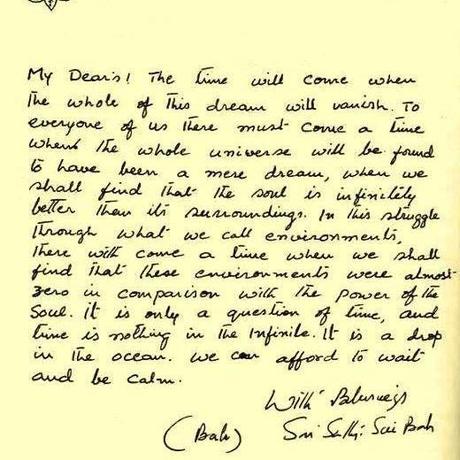 My Dear's! The time will come when
the whole of this dream will vanish. To
everyone of us there must come a time
when the whole universe will be found
to have been a mere dream, when we
shall find that the soul is infinitely
better than its surroundings. In this struggle
through what we call environments,
there will come a time when we shall
find that these environments were almost
zero in comparison with the power of the
Soul. It is only a question of time, and
time is nothing in the Infinite. It is a drop
in the ocean. we can afford to wait
and be calm.
With Blessings
(Bab) Sri Sathya Sai Bab